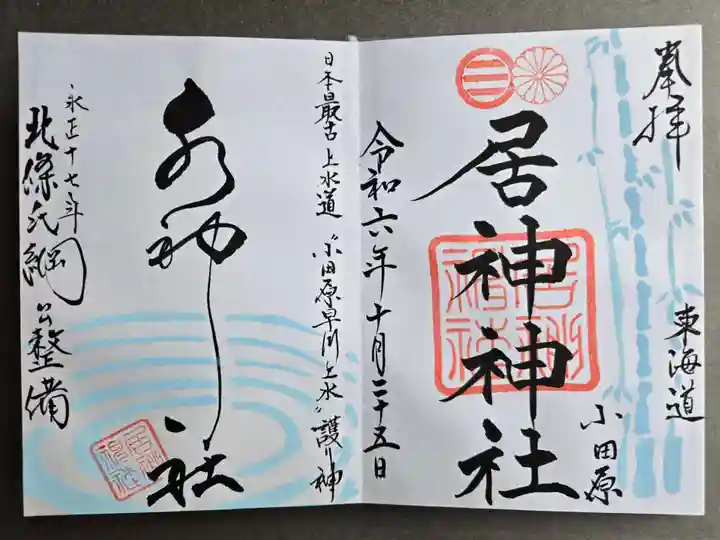 奉拝
東海道
小田原
居神神社
令和六年十月二十五日
日本最古上水道 “小田原早川上水” 護り神
水神社
永正十七年
北條氏綱公整備